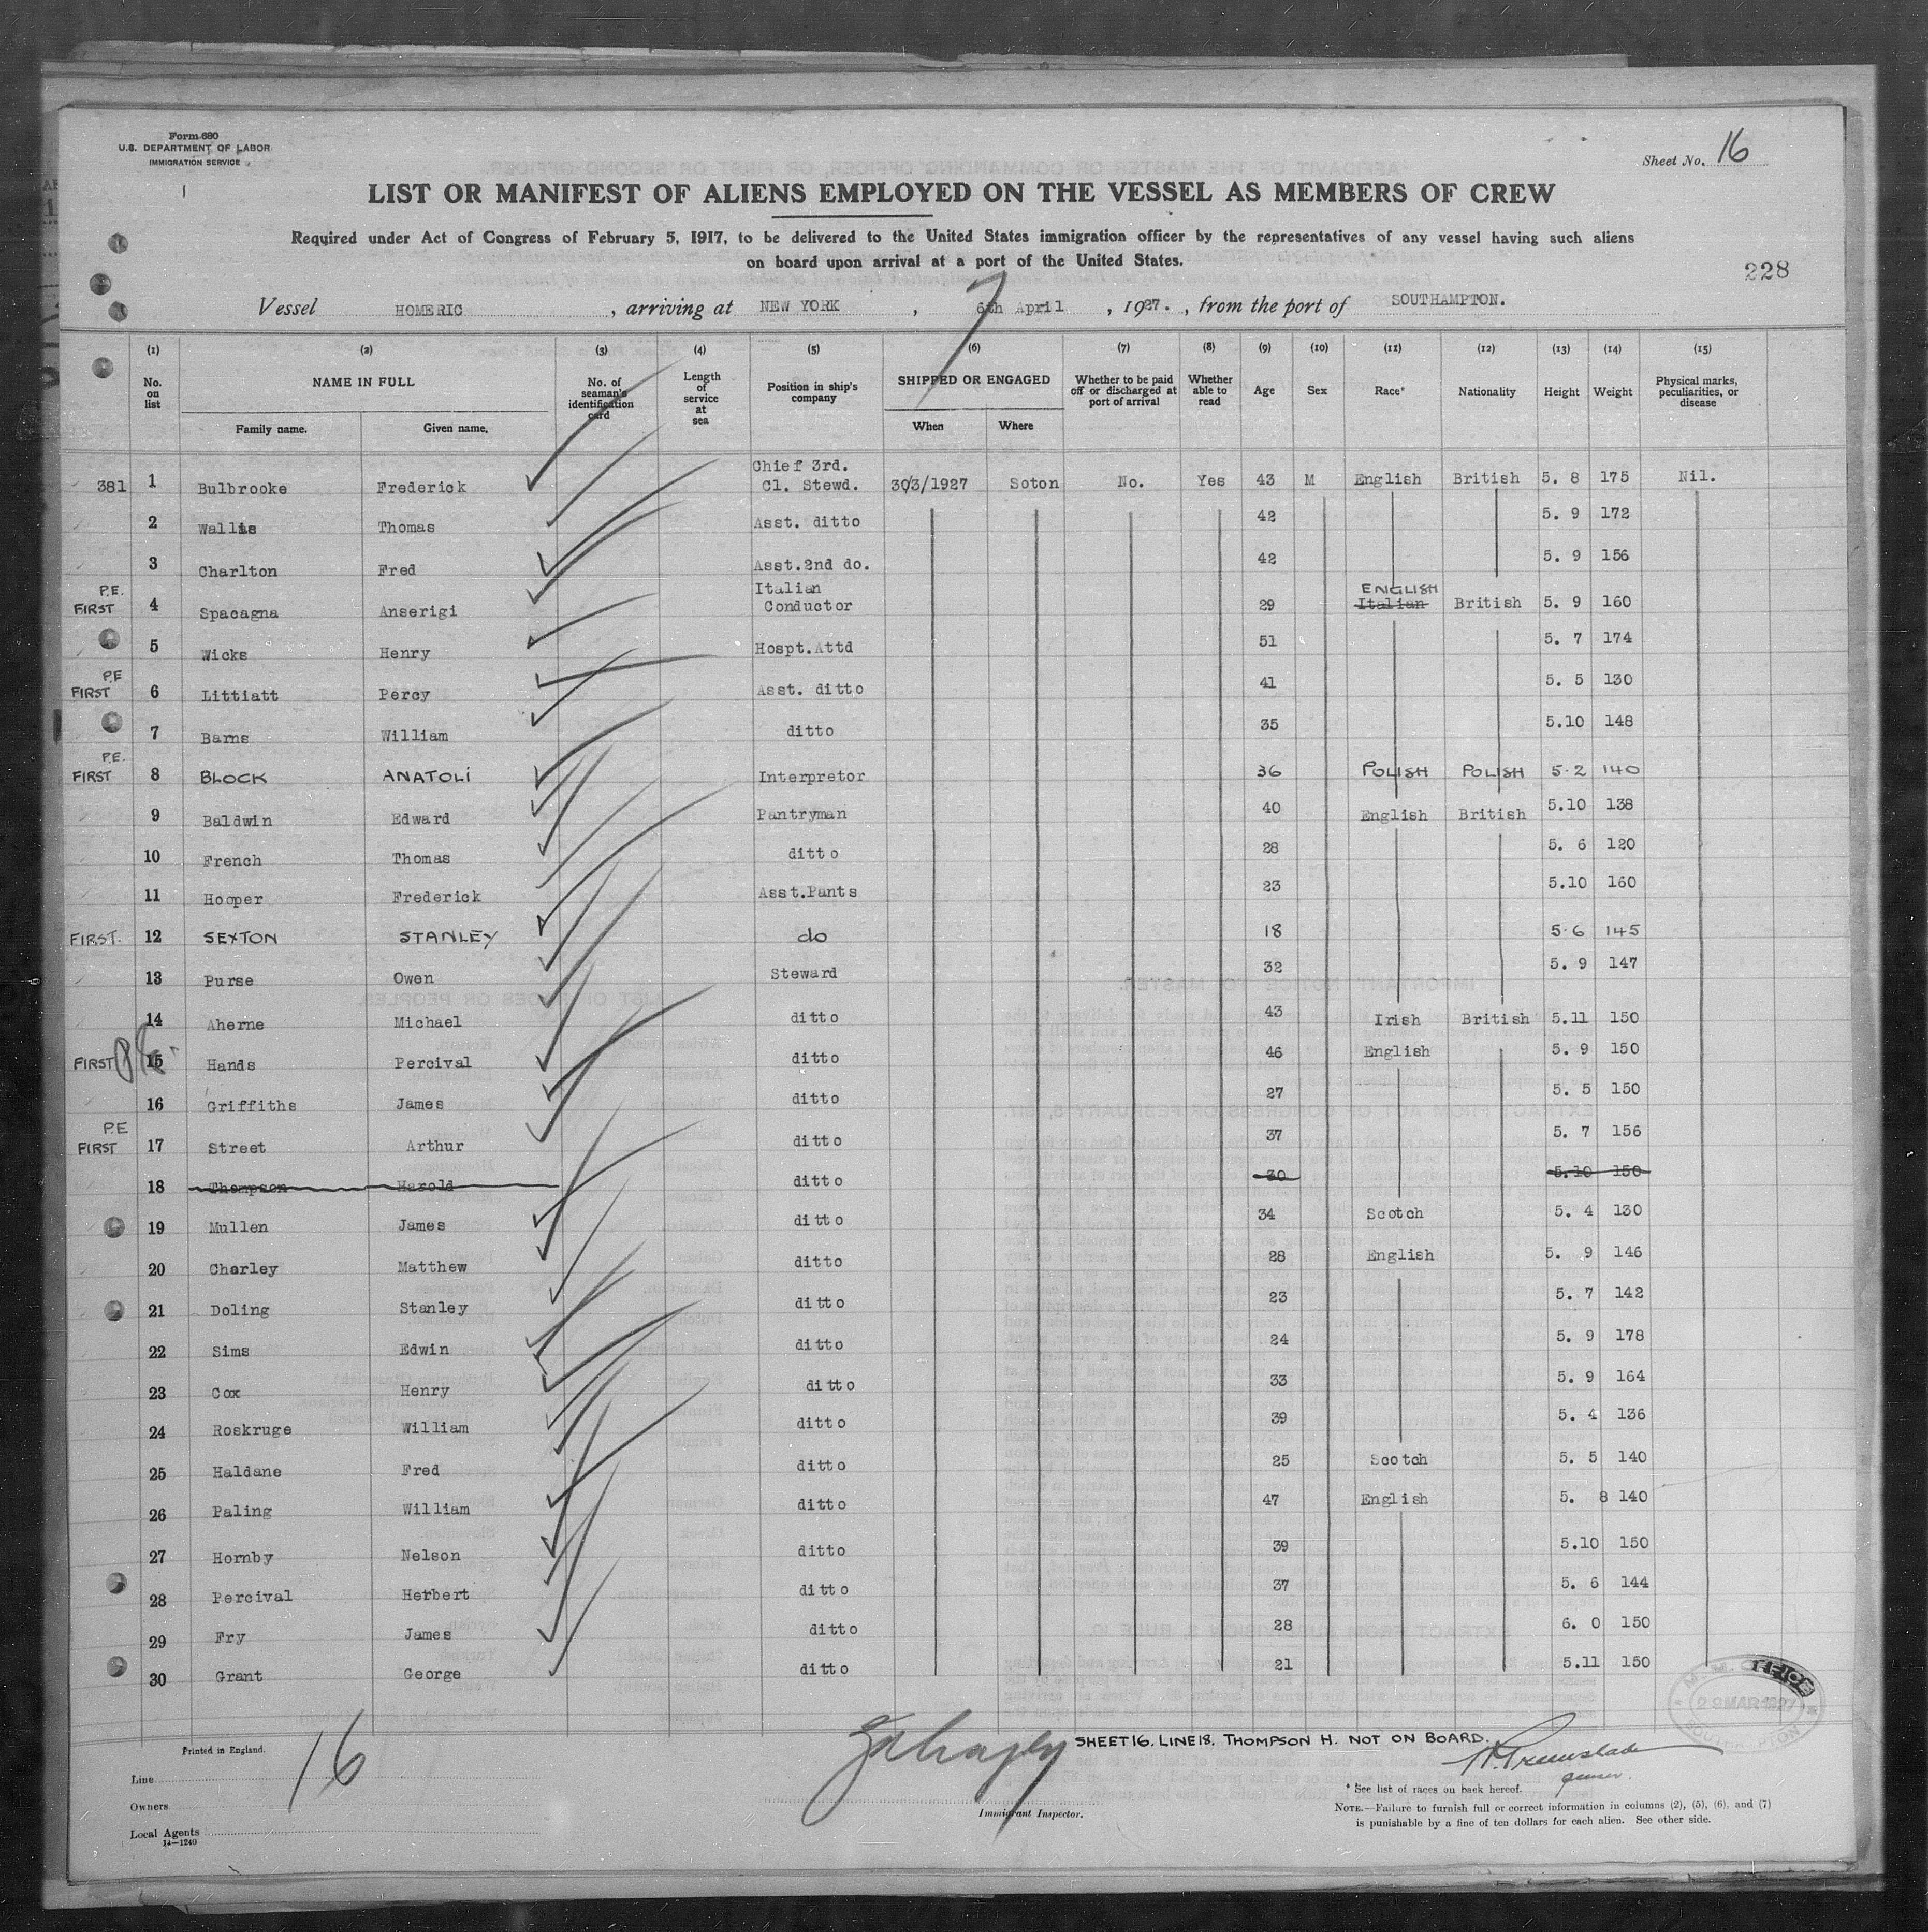 Form 680
U.S. DEPARTMENT OF LABOR
IMMIGRATION SERVICE
Sheet No. 16
LIST OR MANIFEST OF ALIENS EMPLOYED ON THE VESSEL AS MEMBERS OF CREW
Required under Act of Congress of February 5, 1917, to be delivered to the United States immigration officer by the representatives of any vessel having such aliens
on board upon arrival at a port of the United States.
228
Vessel HOMERIC , arriving at NEW YORK , 6th April , 1927. , from the port of SOUTHAMPTON.
7
(1) (2) (3) (4) (5) (6) (7) (8) (9) (10) (11) (12) (13) (14) (15)
No. on list NAME IN FULL Family name. Given name. No. of seaman's identification card Length of service at sea Position in ship's company SHIPPED OR ENGAGED When Where Whether to be paid off or discharged at port of arrival Whether able to read Age Sex Race* Nationality Height Weight Physical marks, peculiarities, or disease
381 1 Bulbrooke Frederick Chief 3rd. Cl. Stewd. 30/3/1927 Soton No. Yes 43 M English British 5. 8 175 Nil.
2 Wallis Thomas Asst. ditto 42 5. 9 172
3 Charlton Fred Asst.2nd do. 42 5. 9 156
P.E. FIRST 4 Spacagna Anserigi Italian Conductor 29 ENGLISH Italian British 5. 9 160
5 Wicks Henry Hospt.Attd 51 5. 7 174
P.E FIRST 6 Littiatt Percy Asst. ditto 41 5. 5 130
7 Barns William ditto 35 5.10 148
P.E. FIRST 8 BLOCK ANATOLI Interpretor 36 POLISH POLISH 5·2 140
9 Baldwin Edward Pantryman 40 English British 5.10 138
10 French Thomas ditto 28 5. 6 120
11 Hooper Frederick Asst.Pants 23 5.10 160
FIRST. 12 SEXTON STANLEY do 18 5·6 145
13 Purse Owen Steward 32 5. 9 147
14 Aherne Michael ditto 43 Irish British 5.11 150
FIRST 15 Hands Percival ditto 46 English 5. 9 150
16 Griffiths James ditto 27 5. 5 150
P.E FIRST 17 Street Arthur ditto 37 5. 7 156
18 Thompson Harold ditto 30 5.10 150
19 Mullen James ditto 34 Scotch 5. 4 130
20 Chorley Matthew ditto 28 English 5. 9 146
21 Doling Stanley ditto 23 5. 7 142
22 Sims Edwin ditto 24 5. 9 178
23 Cox Henry ditto 33 5. 9 164
24 Roskruge William ditto 39 5. 4 136
25 Haldane Fred ditto 25 Scotch 5. 5 140
26 Paling William ditto 47 English 5. 8 140
27 Hornby Nelson ditto 39 5.10 150
28 Percival Herbert ditto 37 5. 6 144
29 Fry James ditto 28 6. 0 150
30 Grant George ditto 21 5.11 150
29 MAR 1927
SHEET 16. LINE 18. THOMPSON H. NOT ON BOARD.
Printed in England.
16
Line
Owners
Local Agents
14—1240
Immigrant Inspector.
* See list of races on back hereof.
NOTE.—Failure to furnish full or correct information in columns (2), (5), (6), and (7)
is punishable by a fine of ten dollars for each alien. See other side.